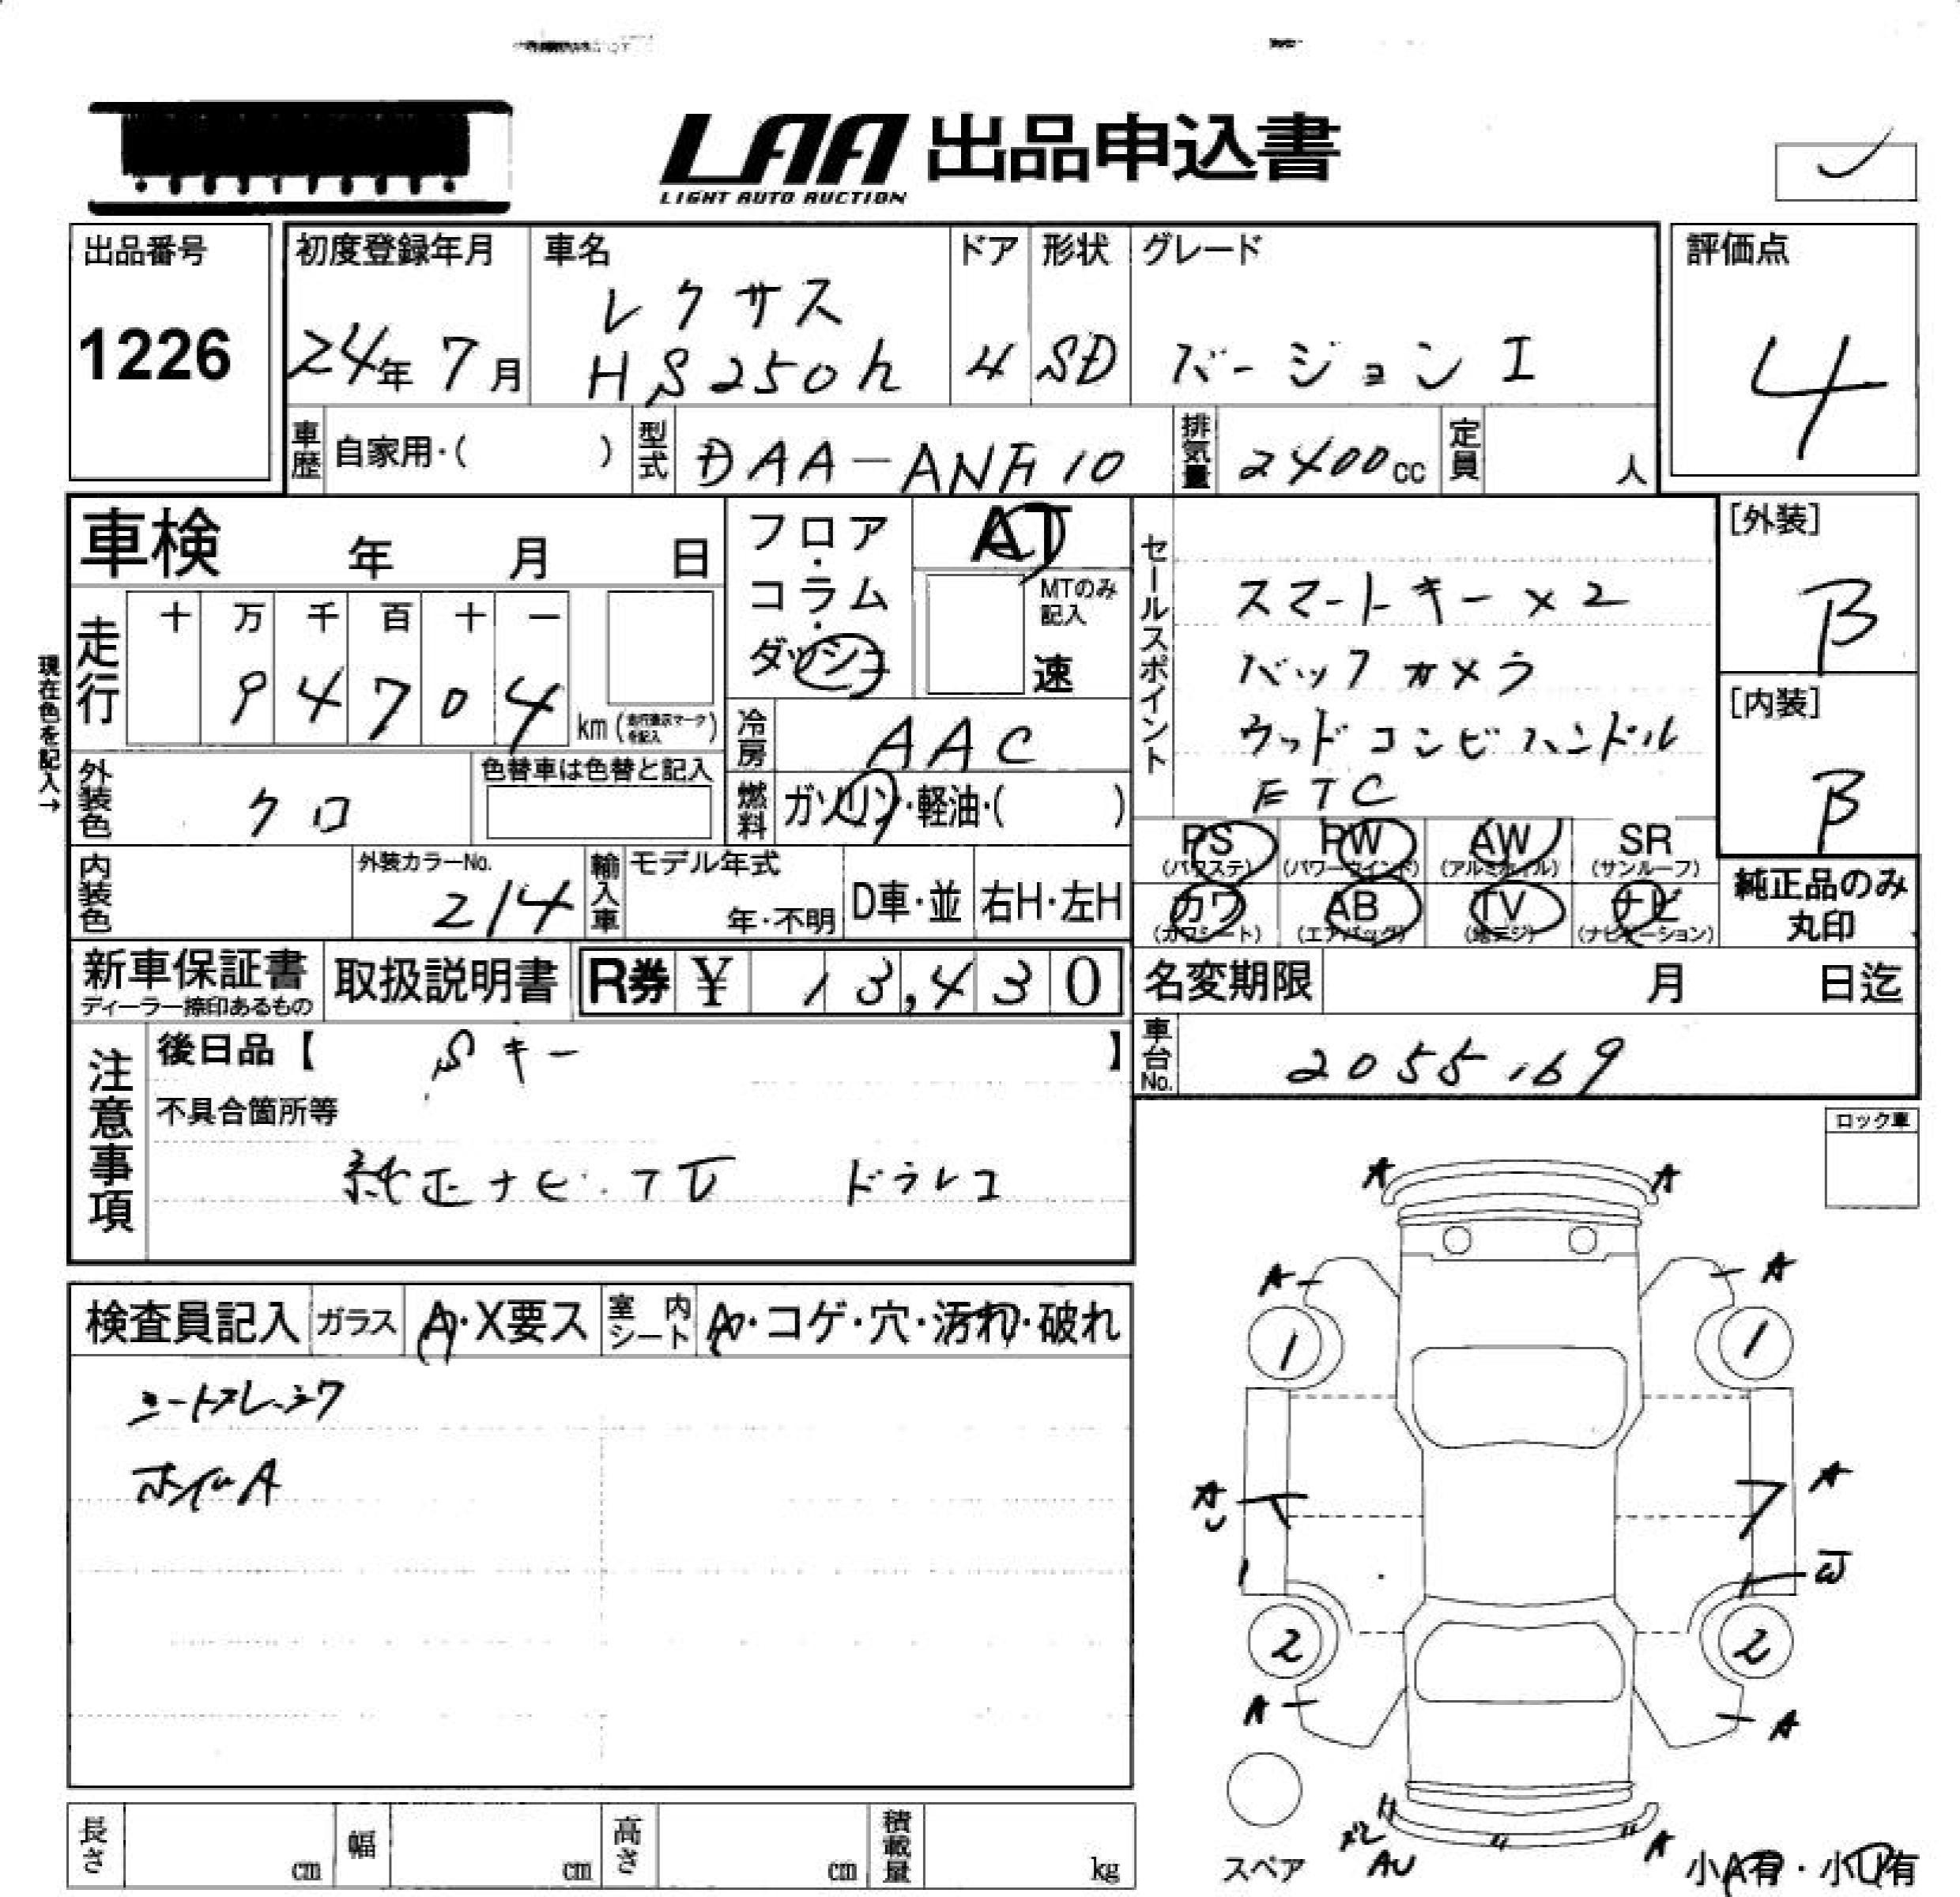 LAA 出品申込書
LIGHT AUTO AUCTION
出品番号
1226
初度登録年月
24年 7月
車名
レクサス
HS250h
ドア
4
形状
SD
グレード
バージョン I
評価点
4
車歴 自家用・( )
型式 DAA-ANF10
排気量 2400cc
定員 人
車検 年 月 日
フロア・コラム・ダッシュ
AT
MTのみ記入
速
セールスポイント
スマートキー×2
バックカメラ
ウッドコンビハンドル
ETC
[外装]
B
[内装]
B
現在色を記入→
走行 十 万 千 百 十 一
94704
km(走行表示マークを記入)
冷房 AAC
外装色 クロ
色替車は色替と記入
燃料 ガソリン・軽油・( )
PS (パワステ) PW (パワーウインド) AW (アルミホイル) SR (サンルーフ)
カワ (カワシート) AB (エアバッグ) TV (地デジ) ナビ (ナビゲーション)
純正品のみ丸印
内装色
外装カラーNo.
214
輸入車 モデル年式
年・不明
D車・並 右H・左H
新車保証書
ディーラー捺印あるもの
取扱説明書
R券 ¥ 13,430
名変期限 月 日迄
車台No. 2055169
注意事項
後日品【 Sキー 】
不具合箇所等
純正ナビ・TV ドラレコ
ロック車
検査員記入 ガラス A・X要ス 室内シート A・コゲ・穴・汚れ・破れ
シートスレ・シワ
ホイルA
A A
A A
1 1
A A
W
2 2
A A
スペア
AU
A
小A有・小U有
長さ cm 幅 cm 高さ cm 積載量 kg